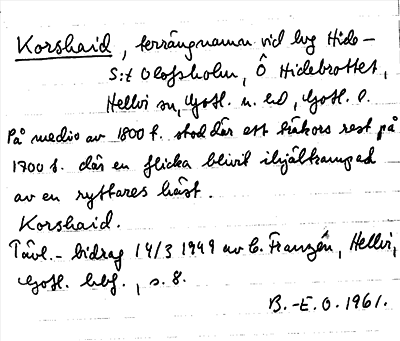 Korshaid, terrängnamn vid lvg Hide-
S:t Olofsholm, Ö Hidebrottet,
Hellvi sn, Gotl. n. hd, Gotl. l.
På medio av 1800 t. stod där ett träkors rest på
1700 t. där en flicka blivit ihjältrampad
av en ryttares häst.
Korshaid.
Tävl.-bidrag 14/3 1949 av C. Franzén, Hellvi,
Gotl. , s. 8.
B.-E. O. 1961.